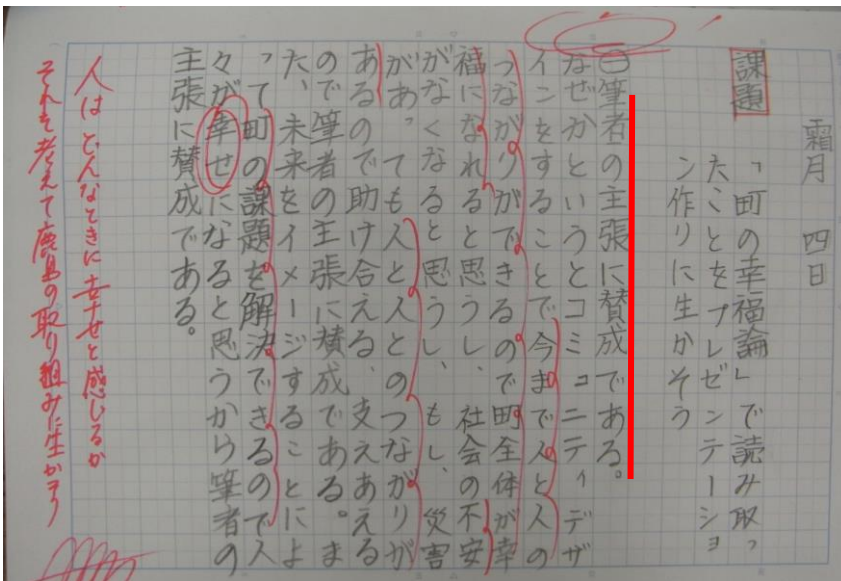 霜月 四日
課題 「町の幸福論」で読み取っ
たことをプレゼンテーショ
ン作りに生かそう
筆者の主張に賛成である。
なぜかというとコミュニティデザ
インをすることで今まで人と人の
つながりができるので町全体が幸
福になれると思うし、社会の不安
がなくなると思うし、もし、災害
があっても人と人とのつながりが
あるので助け合える、支えあえる
ので筆者の主張に賛成である。ま
た、未来をイメージすることによ
って町の課題を解決できるので人
々が幸せになると思うから筆者の
主張に賛成である。
人はどんなときに幸せと感じるか
それを考えて鹿島の取り組みに生かそう